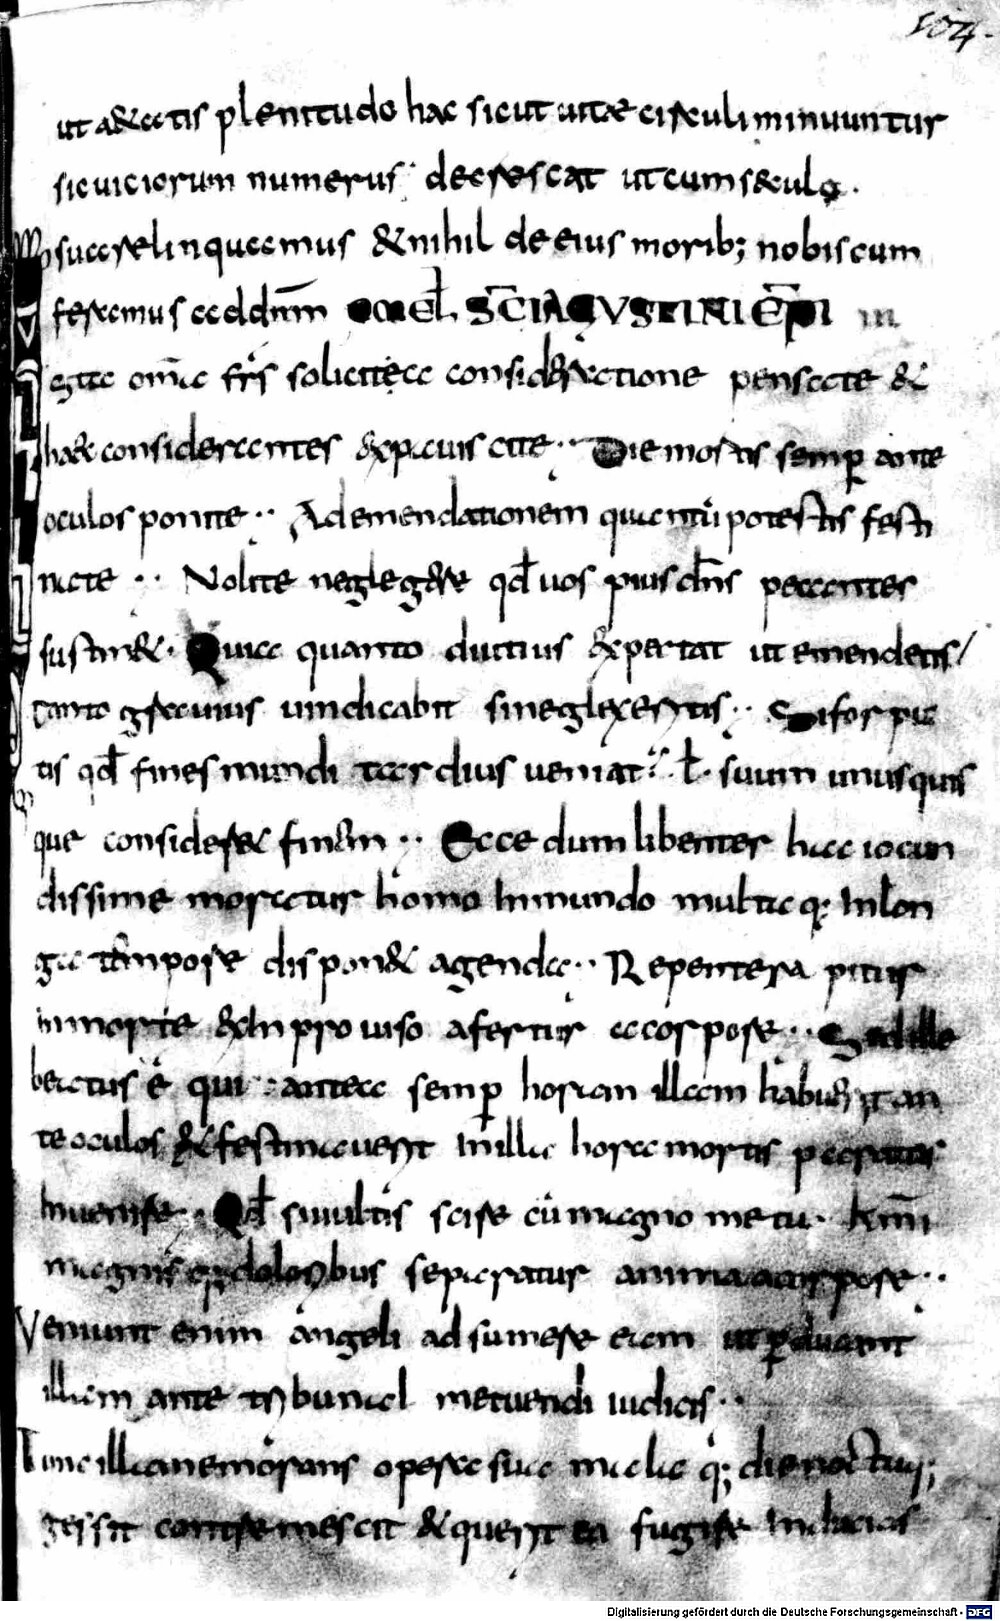 104.
ut aetatis plenitudo hac sicut uitae circuli minuuntur
sic uiciorum numerus decrescat ut cum s&culo.
sua relinquamus & nihil de eius morib; nobiscum
feramus ad dnm OMEL SCI AGUSTINI EPI in
qua oma frs solicita consideratione pensate &
haec considerantes expauiscite Die mortis semp ante
oculos ponite Ad emendationem quantu potestis festi
nate Nolite neglegere qd uos pius dns peccantes
sustin& Quia quanto diutius expectat ut emendetis
tanto grauius uindicabit si neglexeritis Si forsi puta
tis qd fines mundi tardius ueniat l suum unusquis
que consider& finem Ecce dum libenter hac iocun
dissime moratur homo in mundo multaq; in lon
ga tempore dispon& agenda Repente rapitur
in morte ex inprouiso afertur a corpore Sed ille
beatus e qui antea semp horam illam habuerit an
te oculos & festinauerit in illa hora mortis paratus
inuenire Qd si uultis scire cu magno metu
magnis q; doloribus separatur anima a corpore
Veniunt enim angeli adsumere eam ut pducant
illam ante tribunal metuendi iudicis
Tunc illa memorans opera sua mala q; die noctuq;
gessit contremescit & querit ea fugire inducias
Digitalisierung gefördert durch die Deutsche Forschungsgemeinschaft - DFG